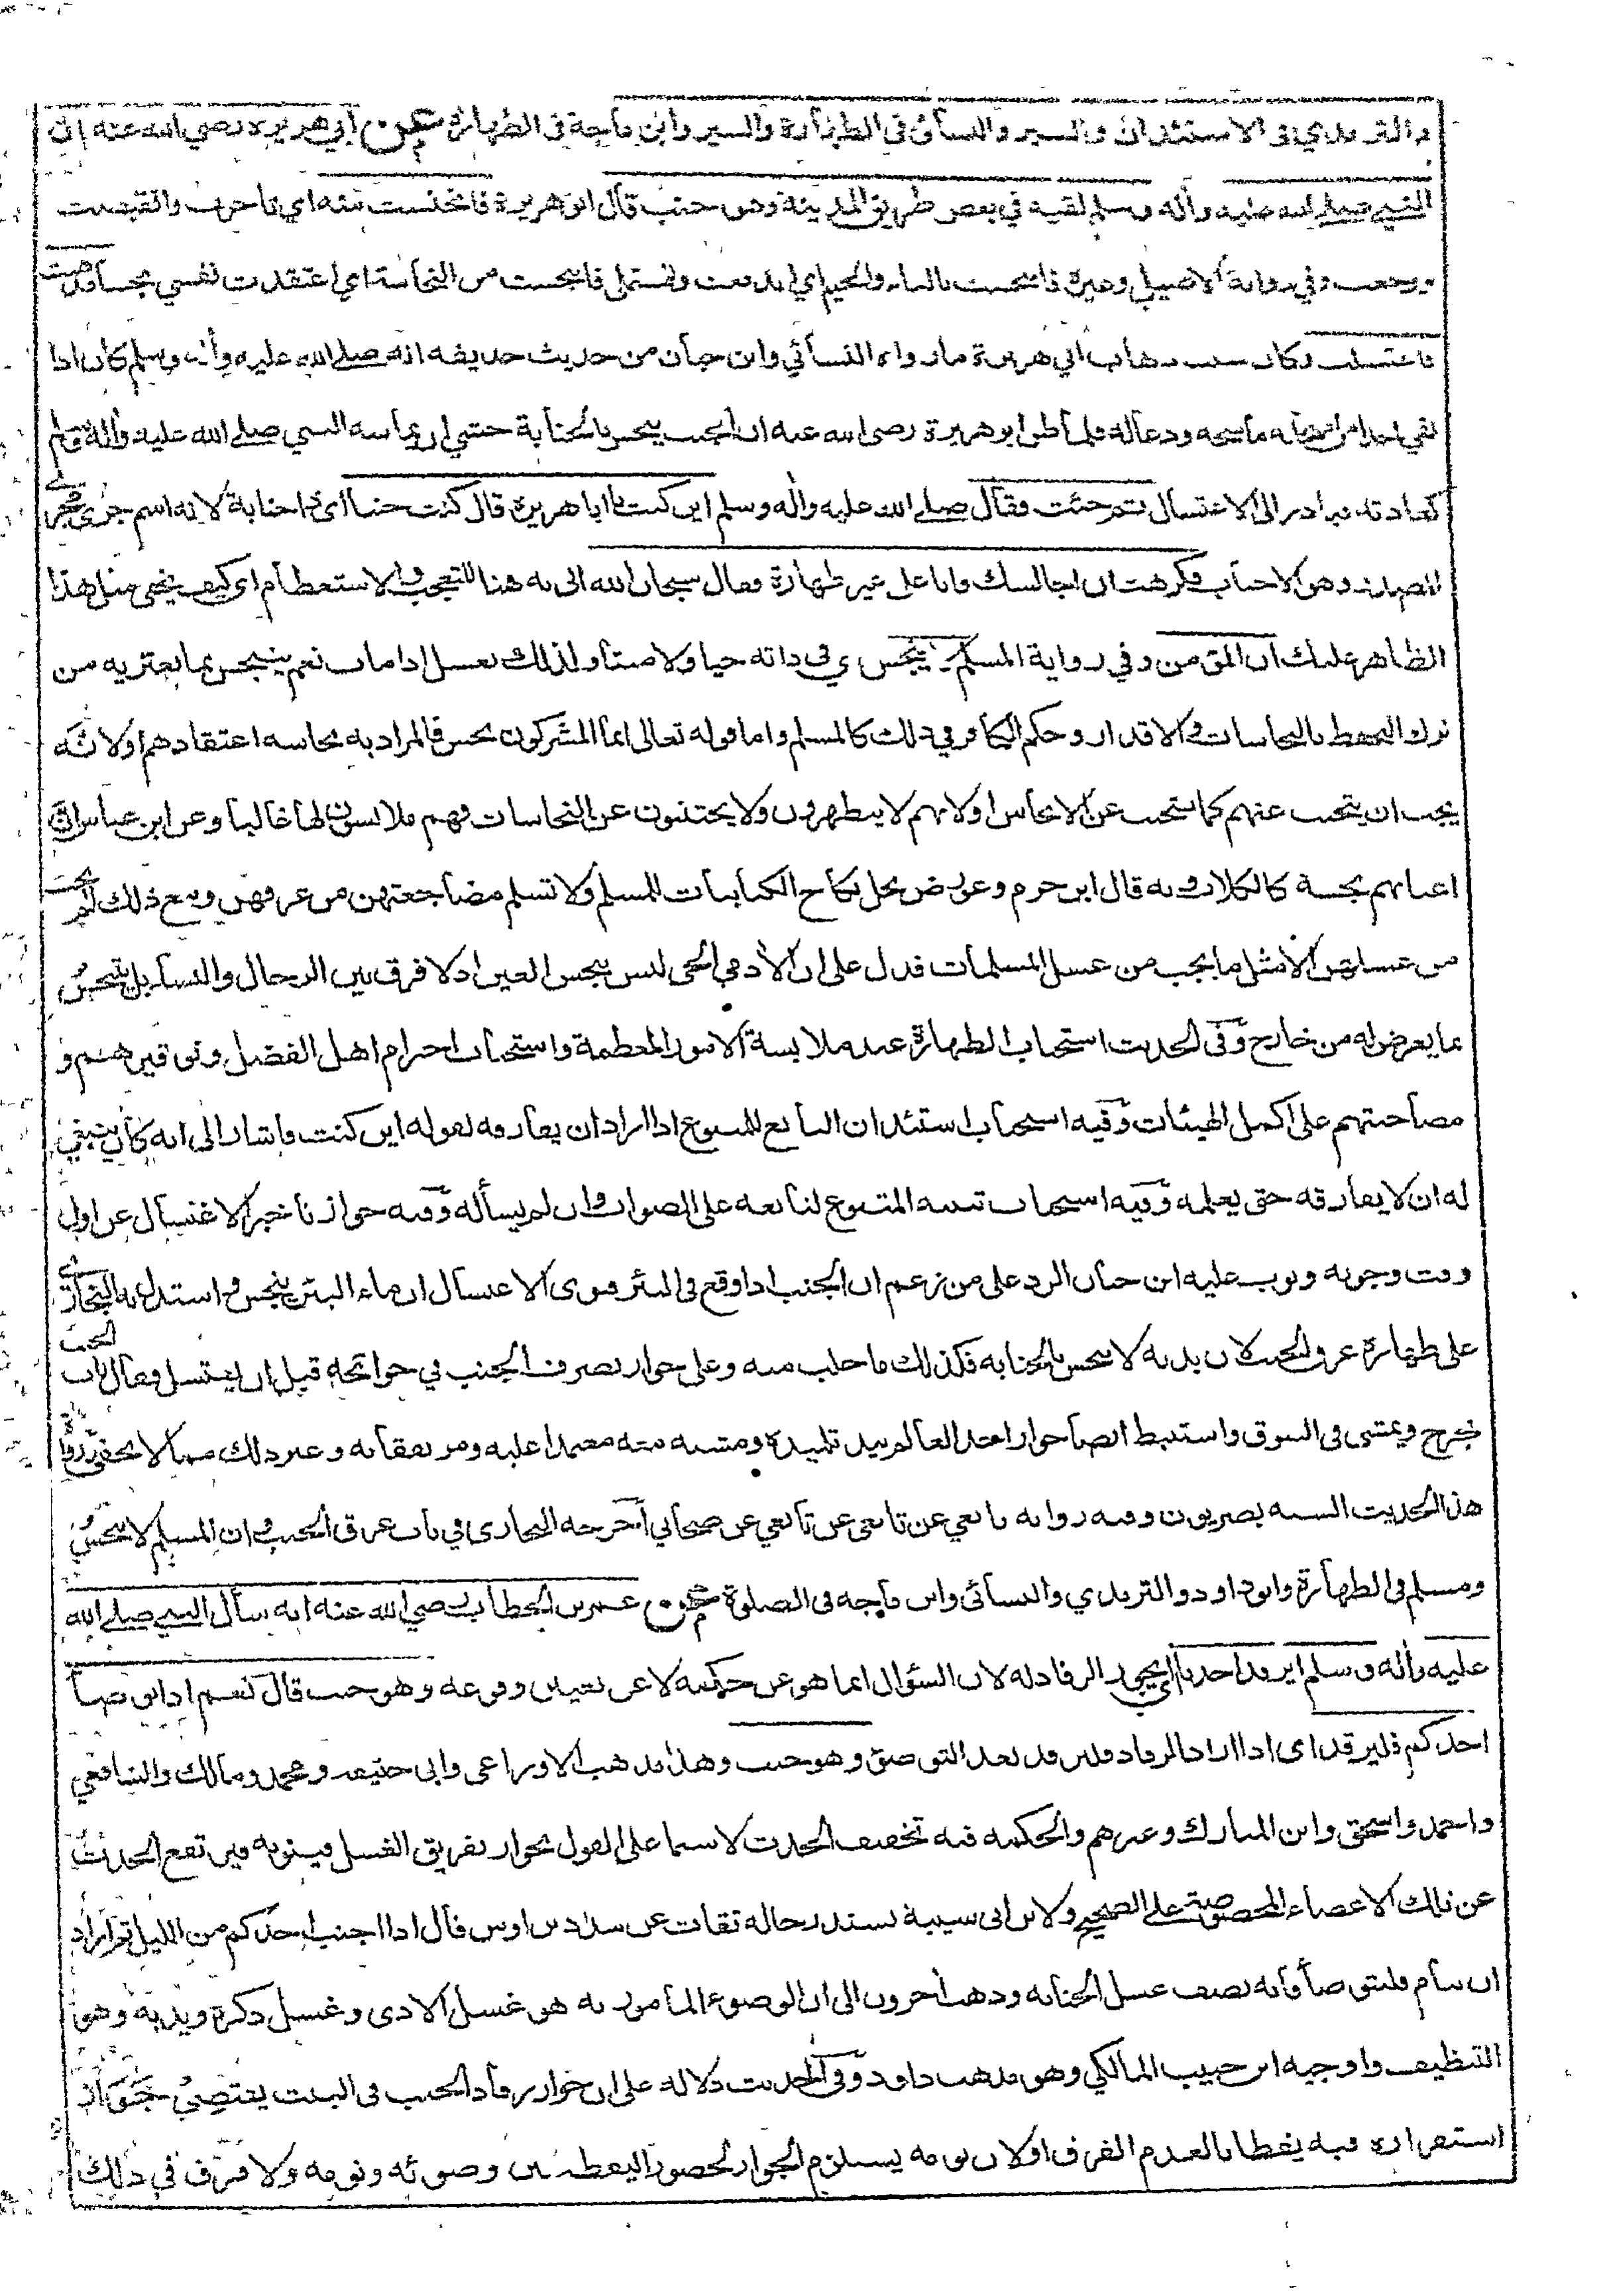 والترمذي في الاستئذان والسير والنسائ في الطهارة والسير وابن ماجة في الطهارة عن أبي هريرة رضي الله عنه ان
النبي صلى الله عليه وأله وسلم لقيه في بعض طريق المدينة وهو جنب قال ابو هريرة فانخنست منه اي تأخرت وانقبضت
ورجعت وفي رواية الاصيلي وغيره فانبجست بالباء والجيم اي اندفعت وللمستملي فانتجست من النجاسة اي اعتقدت نفسي نجسا فذهبت
فاغتسلت وكان سبب ذهاب ابي هريرة ما رواه النسائي وابن حبان من حديث حذيفه انه صلى الله عليه وأله وسلم كان اذا
لقي احدا من اصحابه ماسحه ودعا له فلما ظن ابو هريرة رضى الله عنه ان الجنب ينجس بالجنابة خشي ان يماسه النبي صلى الله عليه وأله وسلم
كعادته فبادر الى الاغتسال ثم جئت فقال صلى الله عليه وأله وسلم اين كنت يا ابا هريرة قال كنت جنبا اي ذا جنابة لانه اسم جرى مجرى
المصدر وهو الاجناب فكرهت ان اجالسك وانا على غير طهارة فقال سبحان الله اتى به هنا للتعجب والاستعظام اي كيف يخفى مثل هذا
الظاهر عليك ان المؤمن وفي رواية المسلم لا ينجس اي في ذاته حيا ولا ميتا ولذلك يغسل اذا مات نعم يتنجس بما يعتريه من
ترك التحفظ بالنجاسات والاقذار وحكم الكافر في ذلك كالمسلم واما قوله تعالى انما المشركون نجس فالمراد به نجاسه اعتقادهم او لانه
يجب ان يتجنب عنهم كما يتجنب عن الانجاس او لانهم لا يتطهرون ولا يجتنبون عن النجاسات فهم ملابسون لها غالبا وعن ابن عباس ان
اعيانهم نجسة كالكلاب وبه قال ابن حزم وعورض بحل نكاح الكتابيات للمسلم ولا تسلم مضاجعتهن من عرقهن ومع ذلك لم يجب
من غسلهن الا مثل ما يجب من غسل المسلمات فدل على ان الأدمي الحي ليس بنجس العين اذ لا فرق بين الرجال والنسا بل يتنجس
بما يعرض له من خارج وفي الحديث استحباب الطهارة عند ملابسة الامور المعظمة واستحباب احترام اهل الفضل وتوقيرهم و
مصاحبتهم على اكمل الهيئات وفيه استحباب استئذان التابع للمتبوع اذا اراد ان يفارقه لقوله اين كنت فاشار الى انه كان ينبغي
له ان لا يفارقه حتى يعلمه وفيه استحباب تنبيه المتبوع لتابعه على الصواب وان لم يسأله وفيه جواز تاخير الاغتسال عن اول
وقت وجوبه وبوب عليه ابن حبان الرد على من زعم ان الجنب اذا وقع في البئر فنوى الاغتسال ان ماء البئر ينجس واستدل به البخاري
على طهارة عرق الجنب لان بدنه لا ينجس بالجنابه فكذلك ما تحلب منه وعلى جواز تصرف الجنب في حوائجه قبل ان يغتسل وقال باب الجنب
يخرج ويمشى في السوق واستنبط ايضا جواز اخذ العالم بيد تلميذه ومشيه معه معتمدا عليه ومرتفقا به وغير ذلك مما لا يخفى ورواة
هذا الحديث السته بصريون وفيه رواية تابعي عن تابعي عن صحابي أخرجه البخاري في باب عرق الجنب وان المسلم لا ينجس
ومسلم في الطهارة وابو داود والترمذي والنسائى وابن ماجه في الصلوة عن عمر بن الخطاب رضي الله عنه انه سأل النبي صلى الله
عليه وأله وسلم ايرقد احدنا اي يجوز الرقاد له لان السؤال انما هو عن حكمه لا عن تعيين وقوعه وهو جنب قال نعم اذا توضأ
احدكم فليرقد اى اذا اراد الرقاد فليرقد بعد التوضؤ وهو جنب وهذا مذهب الاوزاعي وابي حنيفه ومحمد ومالك والشافعي
واحمد واسحق وابن المبارك وغيرهم والحكمه فيه تخفيف الحدث لا سيما على القول بجواز تفريق الغسل فينويه فيرتفع الحدث
عن تلك الاعضاء المخصوصة على الصحيح ولابن ابي شيبة بسند رجاله ثقات عن شداد بن اوس قال اذا اجنب احدكم من الليل ثم اراد
ان ينام فليتوضأ فأنه نصف غسل الجنابه وذهب أخرون الى ان الوضوء المأمور به هو غسل الاذى وغسل ذكره ويديه وهو
التنظيف واوجبه ابن حبيب المالكي وهو مذهب داود وفي الحديث دلاله على ان جواز رقاد الجنب في البيت يقتضي جواز
استقراره فيه يقظانا لعدم الفرق او لان نومه يستلزم الجواز لحصور اليقظه بين وضوئه ونومه ولا فرق في ذلك